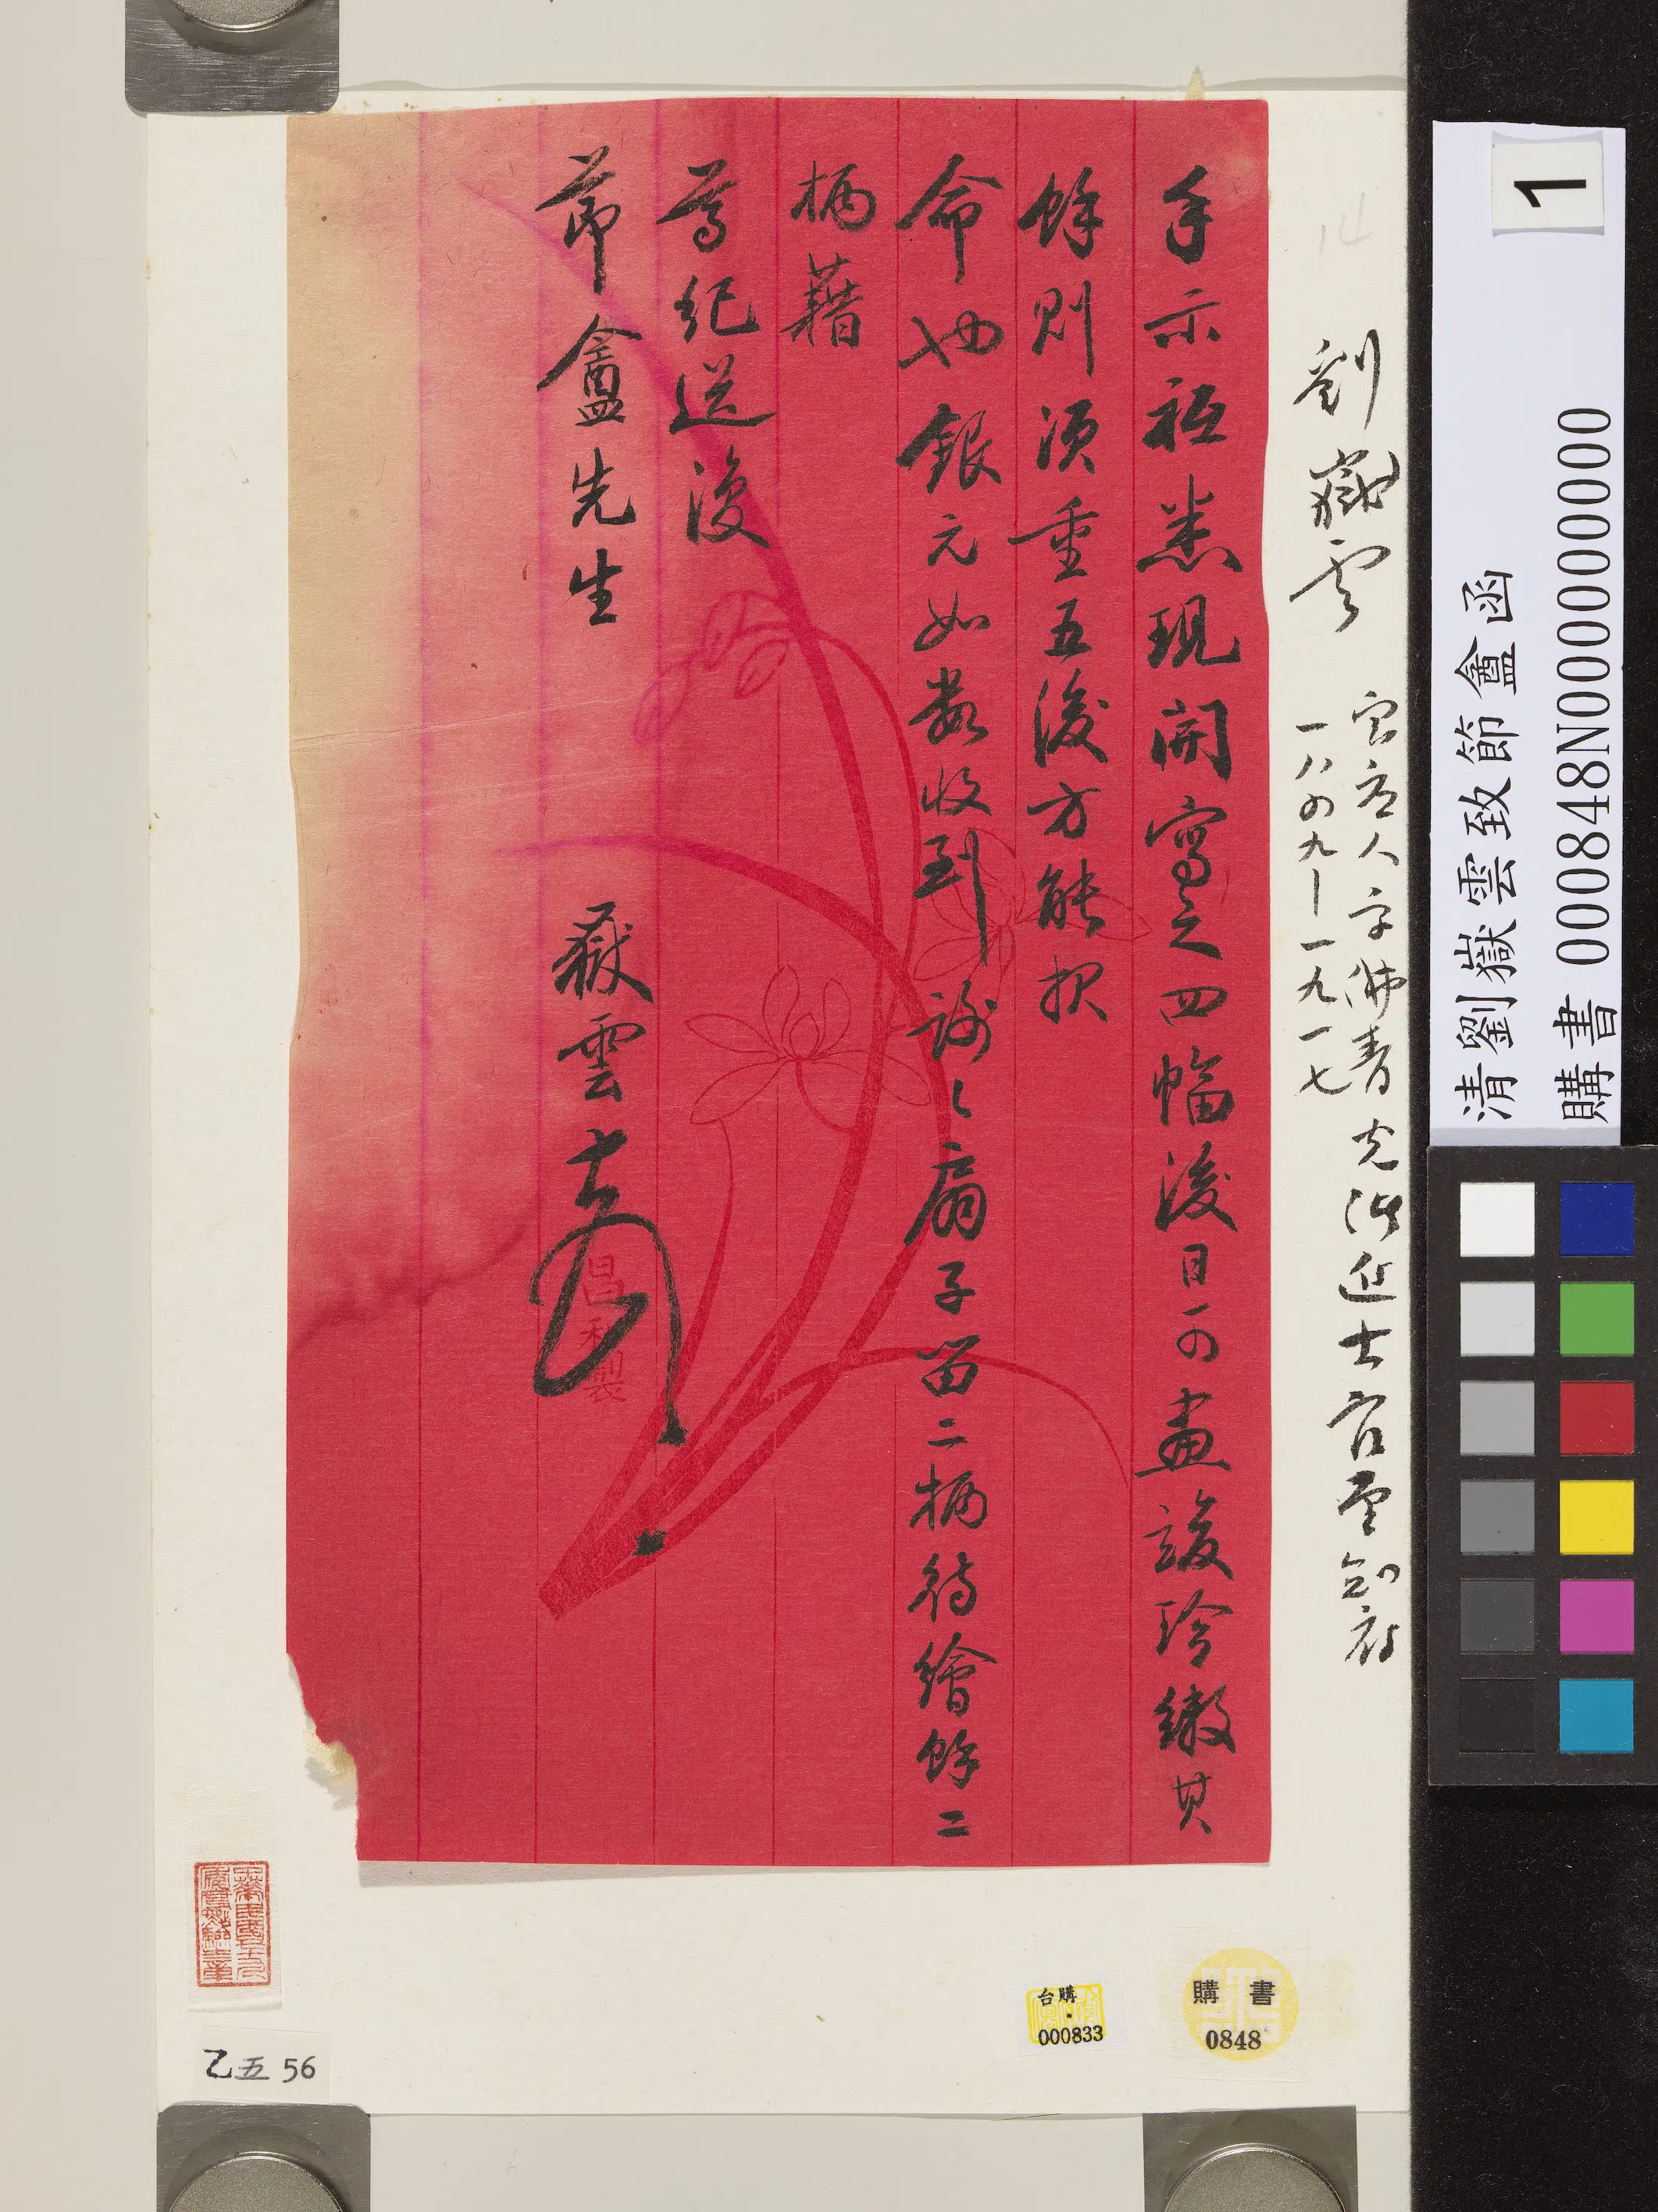 手示祗悉現開寫之四幅後日可畫竣珍繳其
餘則須重五後方能报
命也銀元如數收到謝〻扇子留二柄待繪餘二
柄藉
尊紀送復
節盦先生
嶽雲
昌和製
劉嶽雲
宝应人字佛青光緒进士官
一八四九—一九一七
1
清劉嶽雲致節盦函
購書 000848N000000000
台購
000833
購書
0848
乙五56